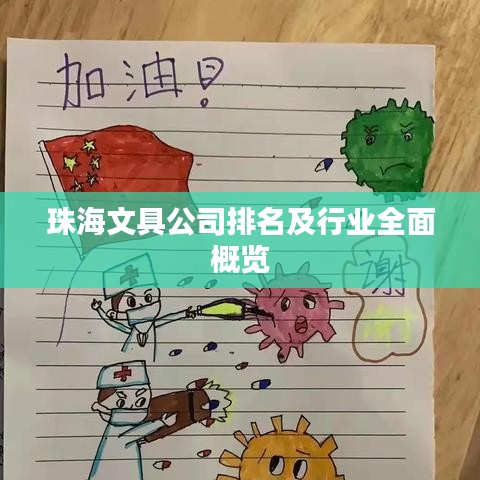 加油!
珠海文具公司排名及行业全面
概览
谢
谢